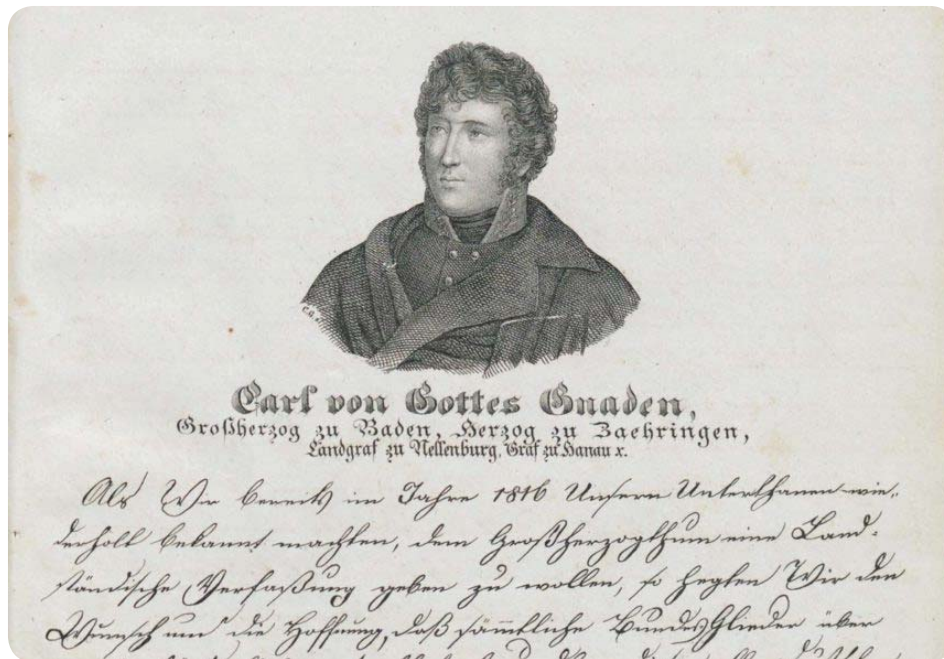 Carl von Gottes Gnaden,
Großherzog zu Baden, Herzog zu Zaehringen,
Landgraf zu Nellenburg, Graf zu Hanau x.
Als Wir bereits im Jahre 1816 Unsern Unterthanen wie„
derholt bekannt machten, dem Großherzogthum eine Land„
ständische Verfaßung geben zu wollen, so hegten Wir den
Wunsch und die Hoffnung, daß sämmtliche BundesGlieder über